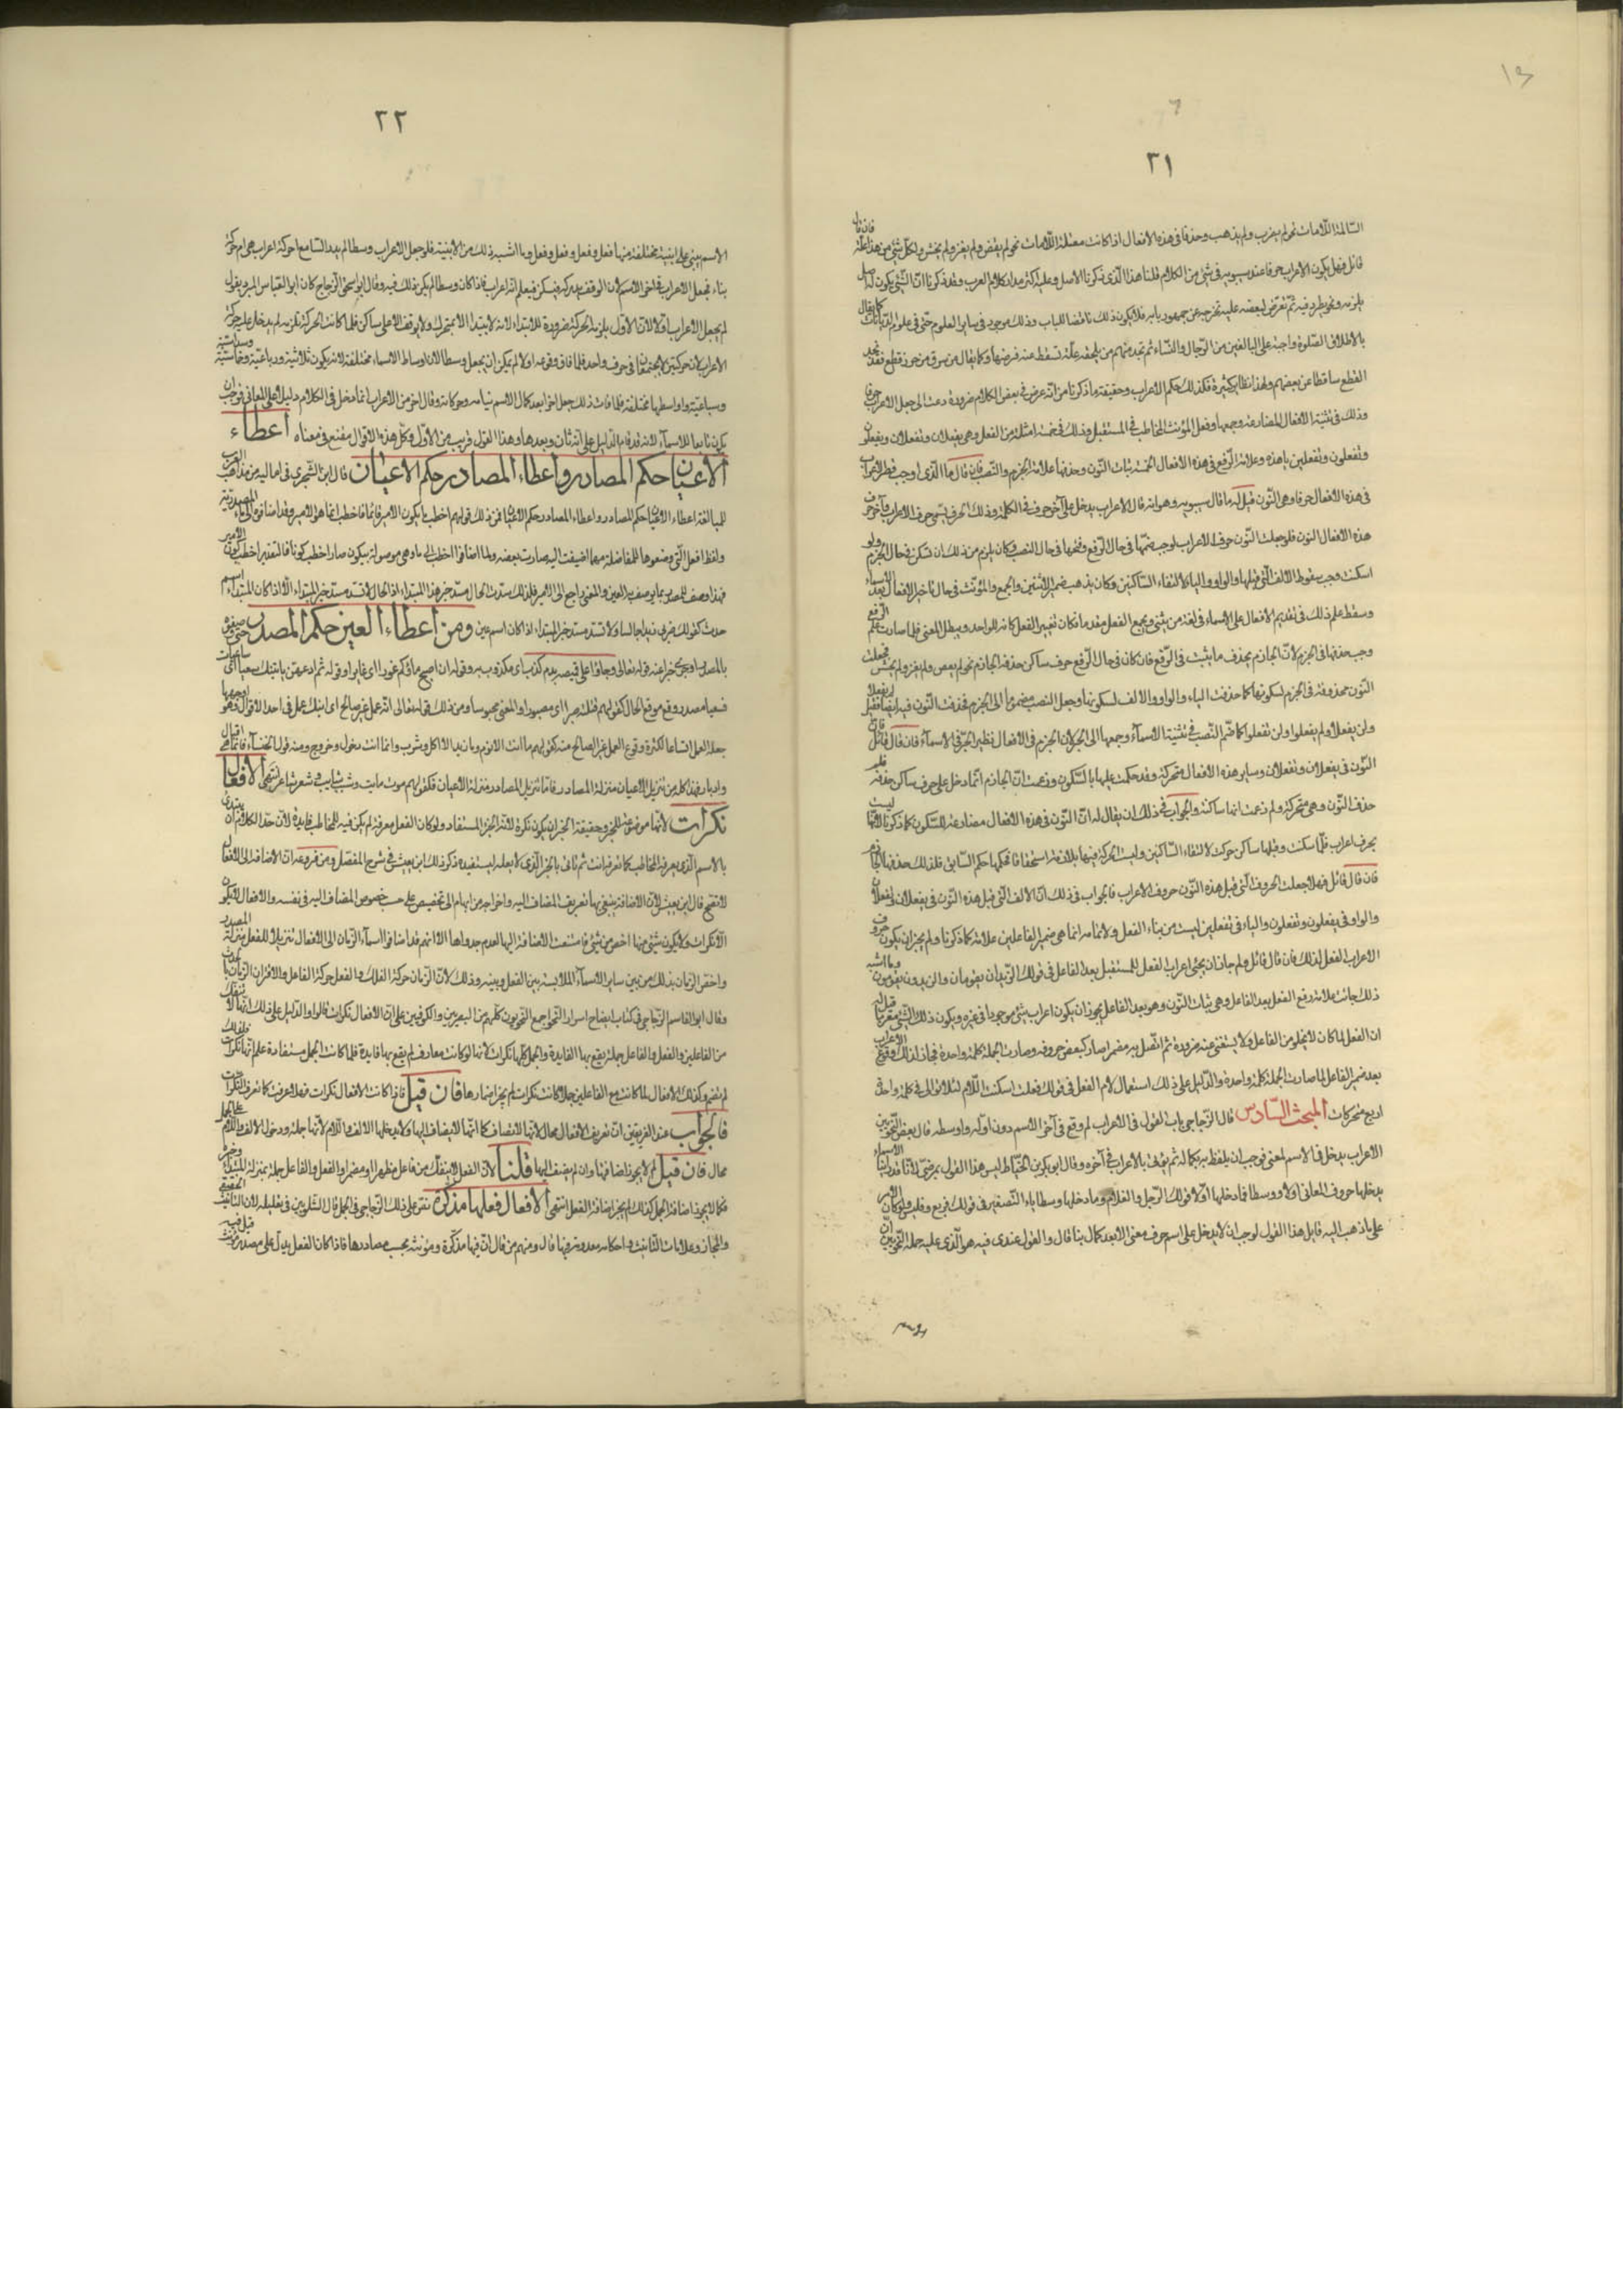 ٣١
السّالمة اللّامات نحو لم يضرب ولم يذهب وحذفا فى هذه الافعال اذا كانت معتلة اللّامات نحو لم يقض ولم يغز ولم يخش ولكلّ شئ من هذا علّة فان قال
قائل فهل يكون الاعراب حرفا عند سيبويه فى شئ من الكلام قلنا هذا الّذى ذكرنا الاصل وعليه اكثر مدار كلام العرب وقد ذكرنا انّ الشّئ يكون له اصل
يلزمه ونحو يطرد فيه ثمّ تعرّض لبعضه علّة تخرجه عن جمهور بابه فلا يكون ذلك ناقضا للباب وذلك موجود فى سائر العلوم حتّى فى علوم الدّيانات كما يقال
بالاطلاق الصّلوة واجبة على البالغين من الرّجال والنّساء ثم تجد منهم من يلحقه علّة تسقط عنه فرضها وكما يقال من سرق من حرز قطع وقد نجد
القطع ساقطا عن بعضهم ولهذا نظاير كثيرة فكذلك حكم الاعراب وحقيقته ما ذكرنا من انّه عرض فى بعض الكلام ضرورة دعت الى جعل الاعراب حرفا
وذلك فى تثنية الافعال المضارعة وجمعها وفعل المؤنث المخاطب فى المستقبل وذلك فى خمسة امثلة من الفعل وهى يفعلان وتفعلان ويفعلون
وتفعلون وتفعلين يا هذه وعلامة الرّفع فى هذه الافعال الخمسة ثبات النّون وحذفها علامة الجزم والنّصب فان قال ما الّذى اوجب
فى هذه الافعال حرفا وهى النّون قيل له ما قال سيبويه وهو انه قال الاعراب يدخل على آخر حرف فى الكلمة وذلك الحرف يسمّى حرف الاعراب وآخر حرف
هذه الافعال النون فلو جعلت النّون حرف الاعراب لوجب ضمّها فى حال الرّفع وفتحها فى حال النصب وكان يلزم من ذلك ان تسكن فى حال الجزم ولو
اسكنت وجب سقوط الالف الّتى قبلها والواو والياء لالتقاء السّاكنين وكان يذهب ضمير الاثنين والجمع والمؤنّث فى حال تاخير الافعال بعد الاسماء
وسقط علم ذلك فى تقديم الافعال على الاسماء فى لغة من يثنى ويجمع الفعل مقدما فكان تغيير الفعل كانه للواحد ويبطل المعنى فلما صارت علم الرّفع
وجب حذفها فى الجزم لانّ الجازم يحذف ما يثبت فى الرّفع فان كان فى حال الرّفع حرف ساكن حذفه الجازم نحو لم يقض ولم يغز ولم يخش فجعلت
النّون محذوفة فى الجزم لسكونها كما حذفت الياء والواو والالف لسكونها وجعل النصب مضموما الى الجزم فحذفت النّون فيه ايضا فقيل لم يفعلا
ولن يفعلا ولم يفعلوا ولن تفعلوا كما ضّم النّصب فى تثنية الاسماء وجمعها الى الجرّ لانّ الجزم فى الافعال نظير الجرّ فى الاسماء فان قال قائل فانّ
النّون فى يفعلان وتفعلان وسائر هذه الافعال متحركة وقد حكمت عليها بالسّكون وزعمت انّ الجازم انّما دخل على حرف ساكن حذفه فلم
حذف النّون وهى متحركة ولم زعمت انها ساكنة والجواب فى ذلك ان يقال له انّ النّون فى هذه الافعال مضارعة للسّكون كما ذكرنا لانّها ليست
بحرف اعراب فلمّا سكنت وقبلها ساكن حركت لالتقاء السّاكنين وليست الحركة فيها بلازمة استحقاقا فحكمها حكم السّاكن فلذلك حذفها الجازم
فان قال قائل فهلا جعلت الحروف الّتى قبل هذه النّون حروف الاعراب فالجواب فى ذلك انّ الالف الّتى قبل هذه النّون فى يفعلان وتفعلان
والواو فى يفعلون وتفعلون والياء فى تفعلين ليست من بناء الفعل ولا تمامه انما هى ضمير الفاعلين علامة كما ذكرنا ولم يجز ان يكون حروف
الاعراب الفعل لذلك فان قال قائل ولم جاز ان يجئ اعراب الفعل المستقبل بعد الفاعل فى قولك الزّيدان يقومان والزيدون يقومون وما اشبه
ذلك جائت علامة رفع الفعل بعد الفاعل وهى ثبات النّون وهو بعد الفاعل يجوز ان يكون اعراب شئ موجودا فى غيره ويكون ذلك الشّئ معربا قيل له
ان الفعل لما كان لا يخلو من الفاعل ولا يستغنى عنه ضرورة ثم اتّصل به مضمرا صار كبعض حروفه وصارت الجملة كلمة واحدة فجاز لذلك وقوع الاعراب
بعد ضمير الفاعل لما صارت الجملة كلمة واحدة والدّليل على ذلك استعمال لام الفعل فى قولك فعلت اسكنت اللّام لئلا توالى فى كلمة واحدة
اربع متحركات المبحث السّادس قال الزّجاجى باب القول فى الاعراب لم وقع فى آخر الاسم دون اوّله واوسطه قال بعض النّحويّين
الاعراب يدخل فى الاسم لمعنى فوجب ان يلفظ به بكماله ثم يؤتى بالاعراب فى آخره وقال ابو بكر بن الخيّاط ليس هذا القول بمرضىّ لانّا قد راينا الاسماء
يدخلها حروف المعانى اوّلا ووسطا فما دخلها اوّلا قولك الرّجل والغلام وما دخلها وسطا ياء التّصغير فى قولك فريخ وفليس ولو كان الامر
على ما ذهب اليه قايل هذا القول لوجب ان لا يدخل على اسم حرف معنى الا بعد كمال بنائه قال والقول عندى فيه هو الّذى عليه جلة النّحويّين انّ
٢٢
الاسم يبنى على ابنية مختلفة منها فعل وفعل وفعل وفعل وما اشبه ذلك من الابنية فلو جعل الاعراب وسطا لم يدر السّامع احركة اعراب هى ام حركة
بناء فجعل الاعراب فى اخر الاسم لان الوقف يدركه فيسكن فيعلم انّه اعراب فاذا كان وسطا لم يكن ذلك فيه وقال ابو اسحق الزّجاج كان ابو العبّاس المبرد يقول
لم يجعل الاعراب اوّلا لانّ الاوّل يلزمه الحركة ضرورة للابتداء لانه لا يبتدأ الا بمتحرك ولا يوقف الا على ساكن فلما كانت الحركة تلزمه لم يدخل عليه حركة
الاعراب لانّ حركتين لا تجتمعان فى حرف واحد فلما فات وقوعه اولا لم يمكن ان يجعل وسطا لان اوساط الاسماء مختلفة لانه يكون ثلاثية ورباعيّة وخماسيّة وسداسيّة
وسباعيّة واواسطها مختلفة فلما فات ذلك جعل اخرا بعد كمال الاسم ببنائه وحركاته وقال اخرون الاعراب انما دخل فى الكلام دليلا على المعانى فوجب ان
يكون تابعا للاسماء لانه قد قام الدّليل على انّه ثان وبعدها وهذا القول قريب من الاوّل وكلّ هذه الاقوال مقنع فى معناه اعطاء
الاعيان حكم المصادر واعطاء المصادر حكم الاعيان قال ابن الشّجرى فى اماليه من مذاهب العرب
للمبالغة اعطاء الاعيان حكم المصادر واعطاء المصادر حكم الاعيان فمن ذلك قولهم اخطب ما يكون الامير قائما فاخطب انما هو للامير وقد اضافوه الى ما المصدريّة
ولفظ افعل الّتى وضعوها للمفاضلة مهما اضيفت اليه صارت بعضه ولما اضافوا اخطب الى ما وهى موصولة بيكون صار اخطب كونا فالتقدير اخطب كون الامير
فهذا وصف للمصدر بما يوصف به العين والمعنى راجع الى الامير فلذلك سدّت الحال مسدّ خبر هذا المبتداء اذ الحال لا تسدّ مسدّ خبر المبتداء الّا اذا كان المبتداء اسم
حدث كقولك ضربى زيدا جالسا ولا تسدّ مسدّ خبر المبتداء اذا كان اسم عين ومن اعطاء العين حكم المصدر
بالمصدر او جرى خبرا عنه قوله تعالى وجاؤا على قميصه بدم كذب اى مكذوب به وقوله ان اصبح ماؤكم غورا اى غايرا وقوله ثم ادعهنّ ياتينك سعيا اى ساعيات
فسعيا مصدر وقع موقع الحال كقولهم قتلته صبرا اى مصبورا والمعنى محبوسا ومن ذلك قوله تعالى انّه عمل غير صالح اى ابنك عمل فى احد الاقوال وهو اوجهها
جعله العمل اتساعا لكثرة وقوع العمل غير الصالح منه كقولهم ما انت الا نوم وما زيد الا اكل وشرب وانما انت دخول وخروج ومنه قول الخنساء فانّما هى اقبال
وادبار فهذا كله من تنزيل الاعيان منزلة المصادر فامّا تنزيل المصادر منزلة الاعيان فكقولهم موت مايت وشيب شايب وشعر شاعر انتهى الافعال
نكرات لانّها موضوعة للخبر وحقيقة الخبر ان يكون نكرة لانّه الجزء المستفاد ولو كان الفعل معرفة لم يكن فيه للمخاطب فايدة لانّ حدّ الكلام ان يبتدئ
بالاسم الّذى يعرفه المخاطب كما تعرفه انت ثم تاتى بالخبر الّذى لا يعلمه ليستفيده ذكر ذلك ابن يعيش فى شرح المفصّل ومن فروعه انّ الاضافة الى الافعال
لا تصح قال ابن يعيش لانّ الاضافة ينبغى بها تعريف المضاف اليه واخراجه من ابهام الى تخصيص على حسب خصوص المضاف اليه فى نفسه والافعال لا تكون
الّا نكرات ولا يكون شئ منها اخص من شئ فامتنعت الاضافة اليها لعدم جدواها الّا انهم قد اضافوا اسماء الزّمان الى الافعال تنزيلا للفعل منزلة المصدر
واختصّ الزمان بذلك من بين ساير الاسماء الملابسة بين الفعل وبينه وذلك لانّ الزّمان حركة الفلك والفعل حركة الفاعل والاقتران الزّمان بالحدث
وقال ابو القاسم الزّجاجى فى كتاب ايضاح اسرار النّحو اجمع النّحويون كلّهم من البصريين والكوفيين على انّ الافعال نكرات قالوا والدّليل على ذلك انّها لا تنفك
من الفاعلين والفعل والفاعل جملة يقع بها الفايدة والجمل كلّها نكرات لانها لو كانت معارف لم يقع بها فايدة فلما كانت الجمل مستفادة علم انّها نكرات فلذلك
لم تضمر وكذلك الافعال لما كانت مع الفاعلين جملا كانت نكرات لم يجز اضمارها فان قيل فاذا كانت الافعال نكرات فهلا عرفت كما تعرف النكرات
فالجواب عند الفريقين انّ تعريف الافعال محال لانّها لا تضاف كما انّها لا يضاف اليها ولا يدخلها الالف واللّام لانّها جملة ودخول الالف واللّام على الجمل
محال فان قيل لم لا يجوز اضافتها وان لم يضيف اليها قلنا لانّ الفعل لا ينفك من فاعل مظهرا او مضمرا والفعل والفاعل جملة بمنزلة المبتداء وخبره
فكما لا يجوز اضافة الجمل كذلك لم يجز اضافة الفعل انتهى الافعال كلها مذكرة نصّ على ذلك الزّجاجى فى الجمل قال الشّلوبين فى تعليله لان التانيث الحقيقى
والمجاز وعلامات التّانيث واحكامه معدومة فيها قال ومنهم من قال انّ فيها مذكّرة ومونثة بحسب مصادرها فاذا كان الفعل يدلّ على مصدر مونث قيل فيه